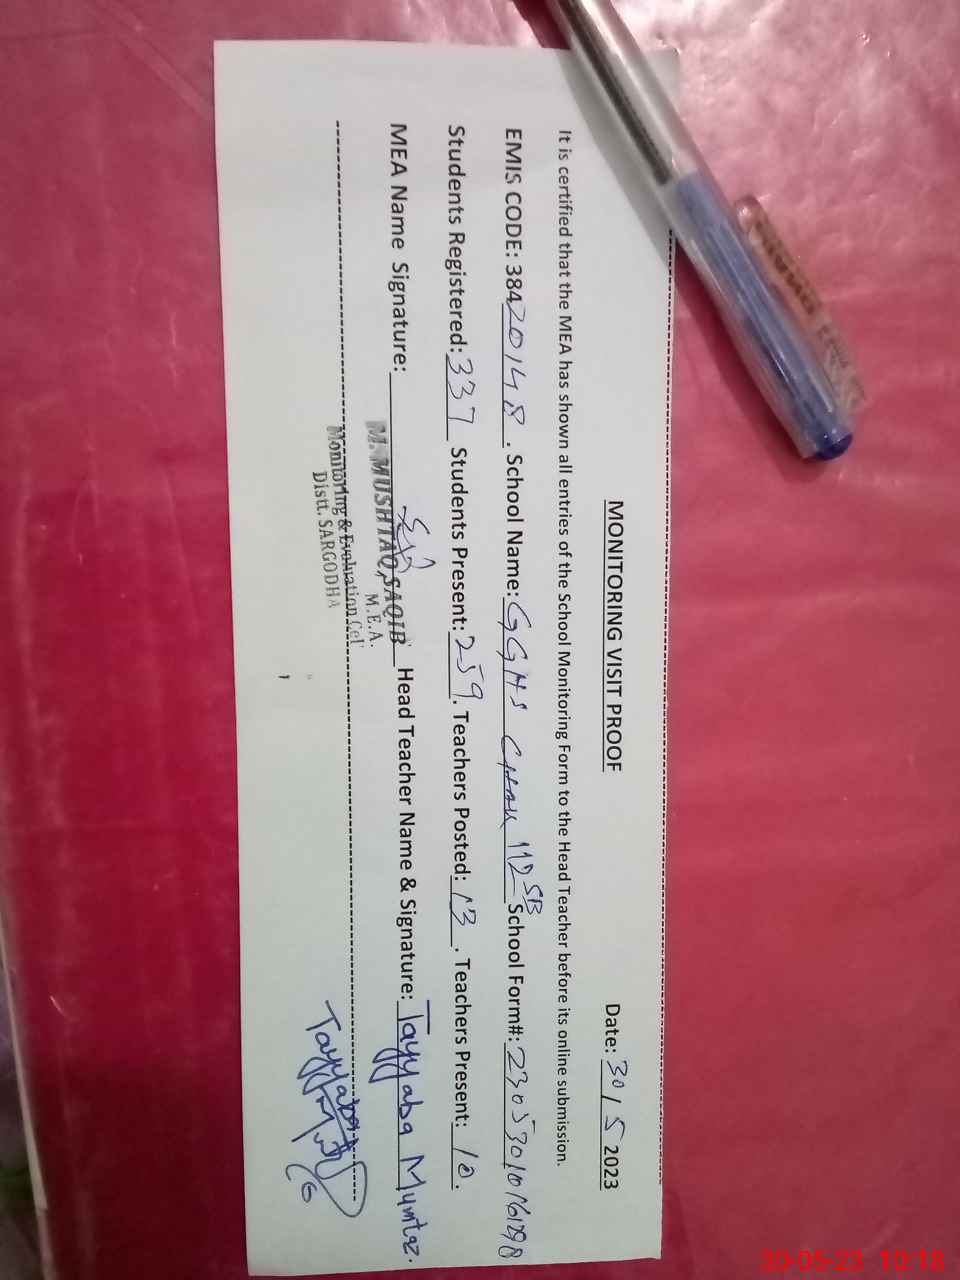 MONITORING VISIT PROOF
Date: 30/5 2023
It is certified that the MEA has shown all entries of the School Monitoring Form to the Head Teacher before its online submission.
EMIS CODE: 38420148. School Name: GGHS CHAK 112 SB School Form#:
Students Registered: 337 Students Present: 259. Teachers Posted: 13. Teachers Present: 10.
MEA Name Signature: Head Teacher Name & Signature: Tayyaba Mumtaz.
M. MUSHTAQ SAQIB
M.E.A.
Monitoring & Evaluation Cel
Distt. SARGODHA
Tayyaba
30-05-23 10:18